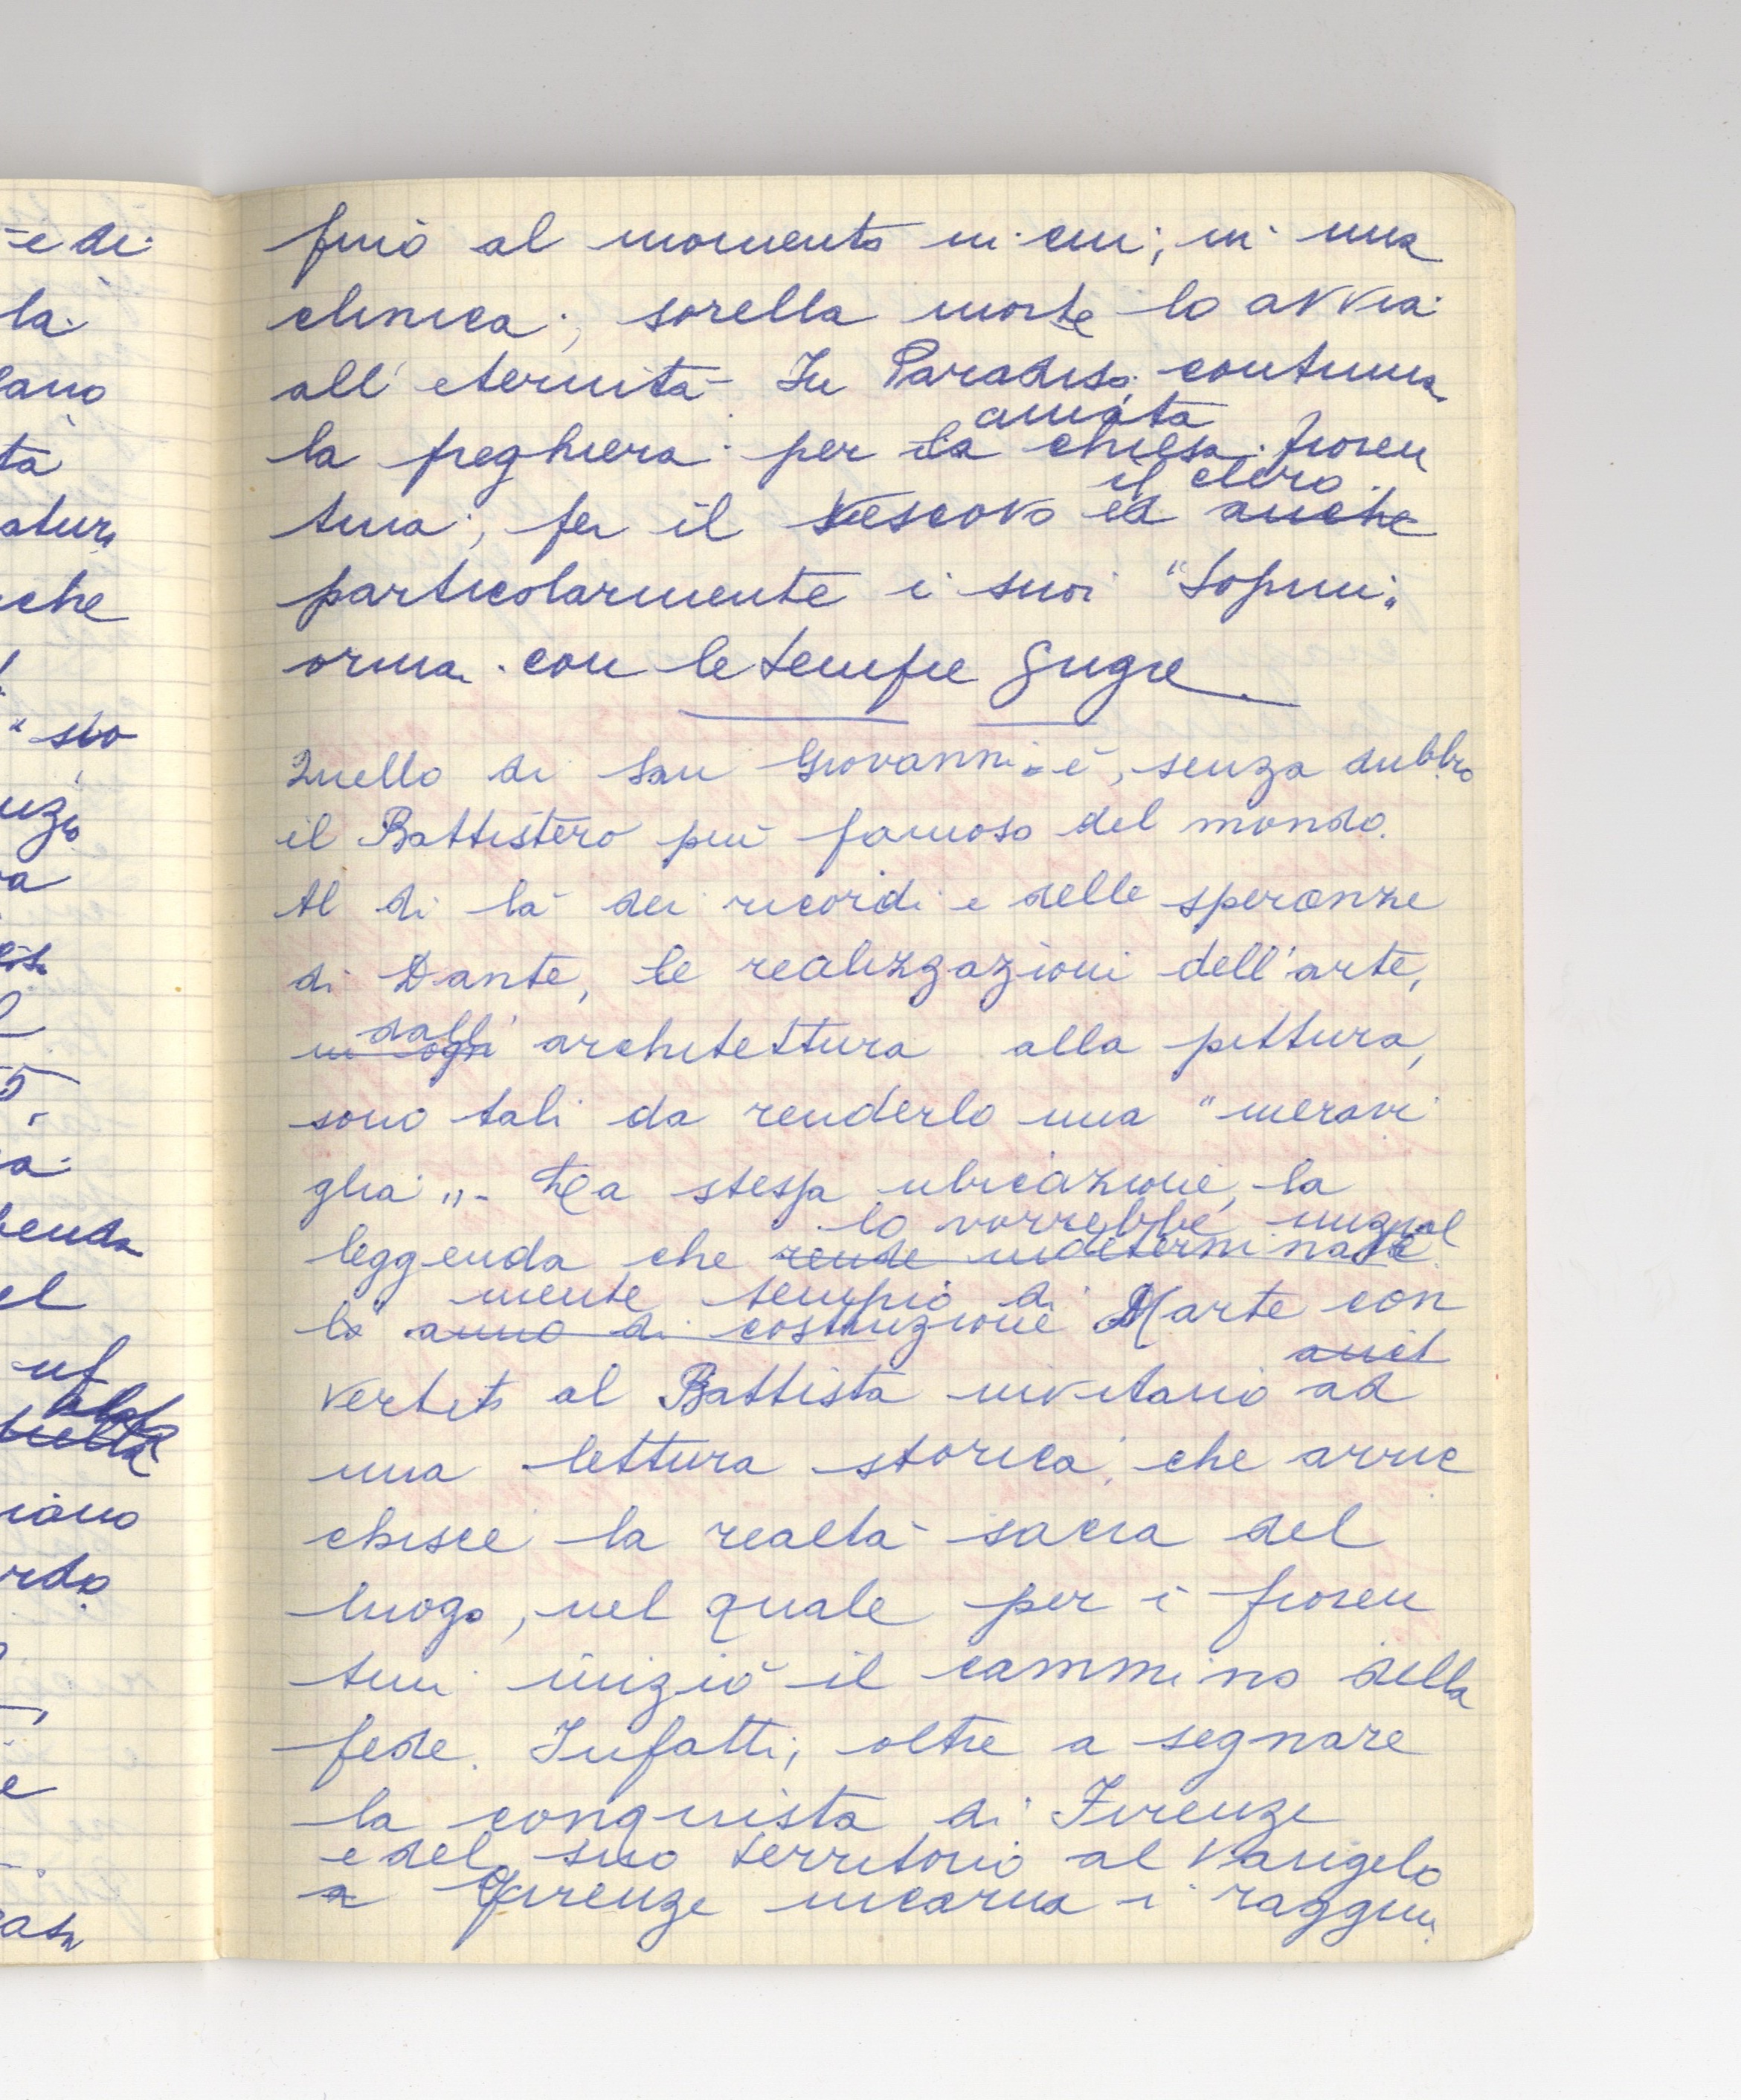 -e di
la
lano
tà
che
la
a
el
e
fino al momento in cui, in una
clinica, sorella morte lo avvia
all'eternità - In Paradiso continua
amata
la preghiera per la chiesa fioren
il clero
tina, per il vescovo ed anche
particolarmente i suoi "
ormai con le tempie grigie.
Quello di San Giovanni è, senza dubbio
il Battistero più famoso del mondo.
Al di là dei ricordi e delle speranze
di Dante, le realizzazioni dell'arte,
dall'
in ogni architettura alla pittura,
sono tali da renderlo una "meravi
glia". La stessa ubicazione, la
lo vorrebbe
leggenda che rende indeterminate
mente tempio di Marte con
lo anno di costruzione
anch
vertito al Battista invitano ad
una lettura storica che arric
chisce la realtà sacra del
luogo, nel quale per i fioren
tini iniziò il cammino della
fede. Infatti, oltre a segnare
la conquista di Firenze
e del suo territorio al Vangelo
a Firenze incarna i